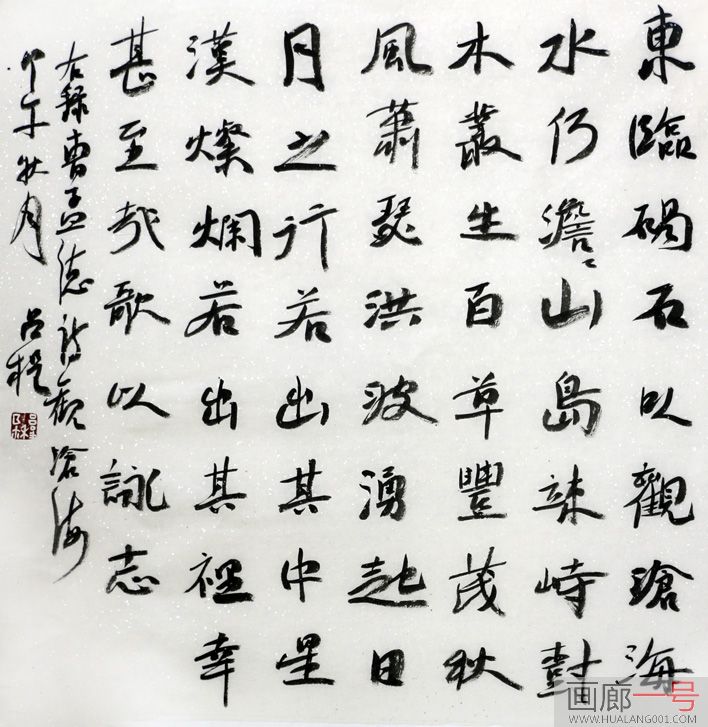 東臨碣石以觀滄海
水何澹〻山島竦峙樹
木叢生百草豐茂秋
風蕭瑟洪波湧起日
月之行若出其中星
漢燦爛若出其裡幸
甚至哉歌以詠志
右録曹孟德詩觀滄海
甲午秋月 吕程
画廊一号
WWW.HUALANG001.COM